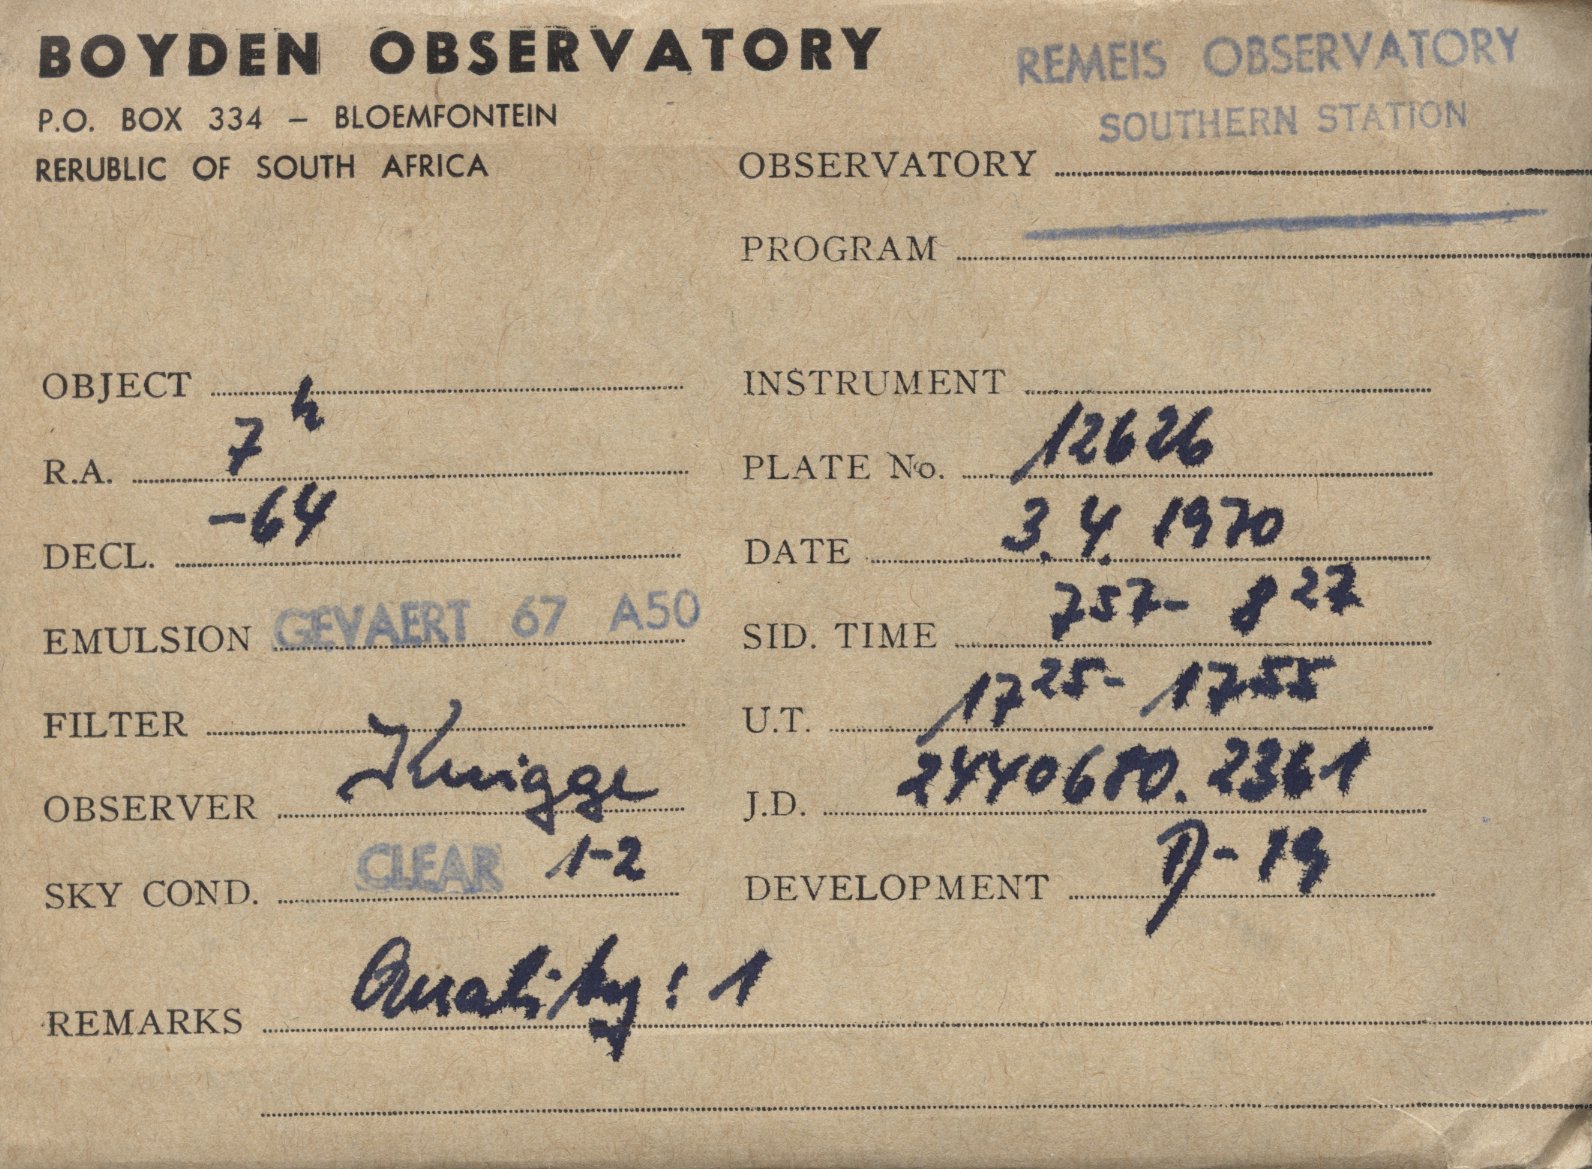 BOYDEN OBSERVATORY
P.O. BOX 334 – BLOEMFONTEIN
RERUBLIC OF SOUTH AFRICA
REMEIS OBSERVATORY
SOUTHERN STATION
OBSERVATORY
PROGRAM
OBJECT
R.A. 7h
DECL. -64
EMULSION GEVAERT 67 A50
FILTER
OBSERVER Knigge
SKY COND. CLEAR 1-2
INSTRUMENT
PLATE No. 12626
DATE 3.4.1970
SID. TIME 757- 827
U.T. 1725- 1755
J.D. 2440680.2361
DEVELOPMENT D-19
REMARKS Quality: 1